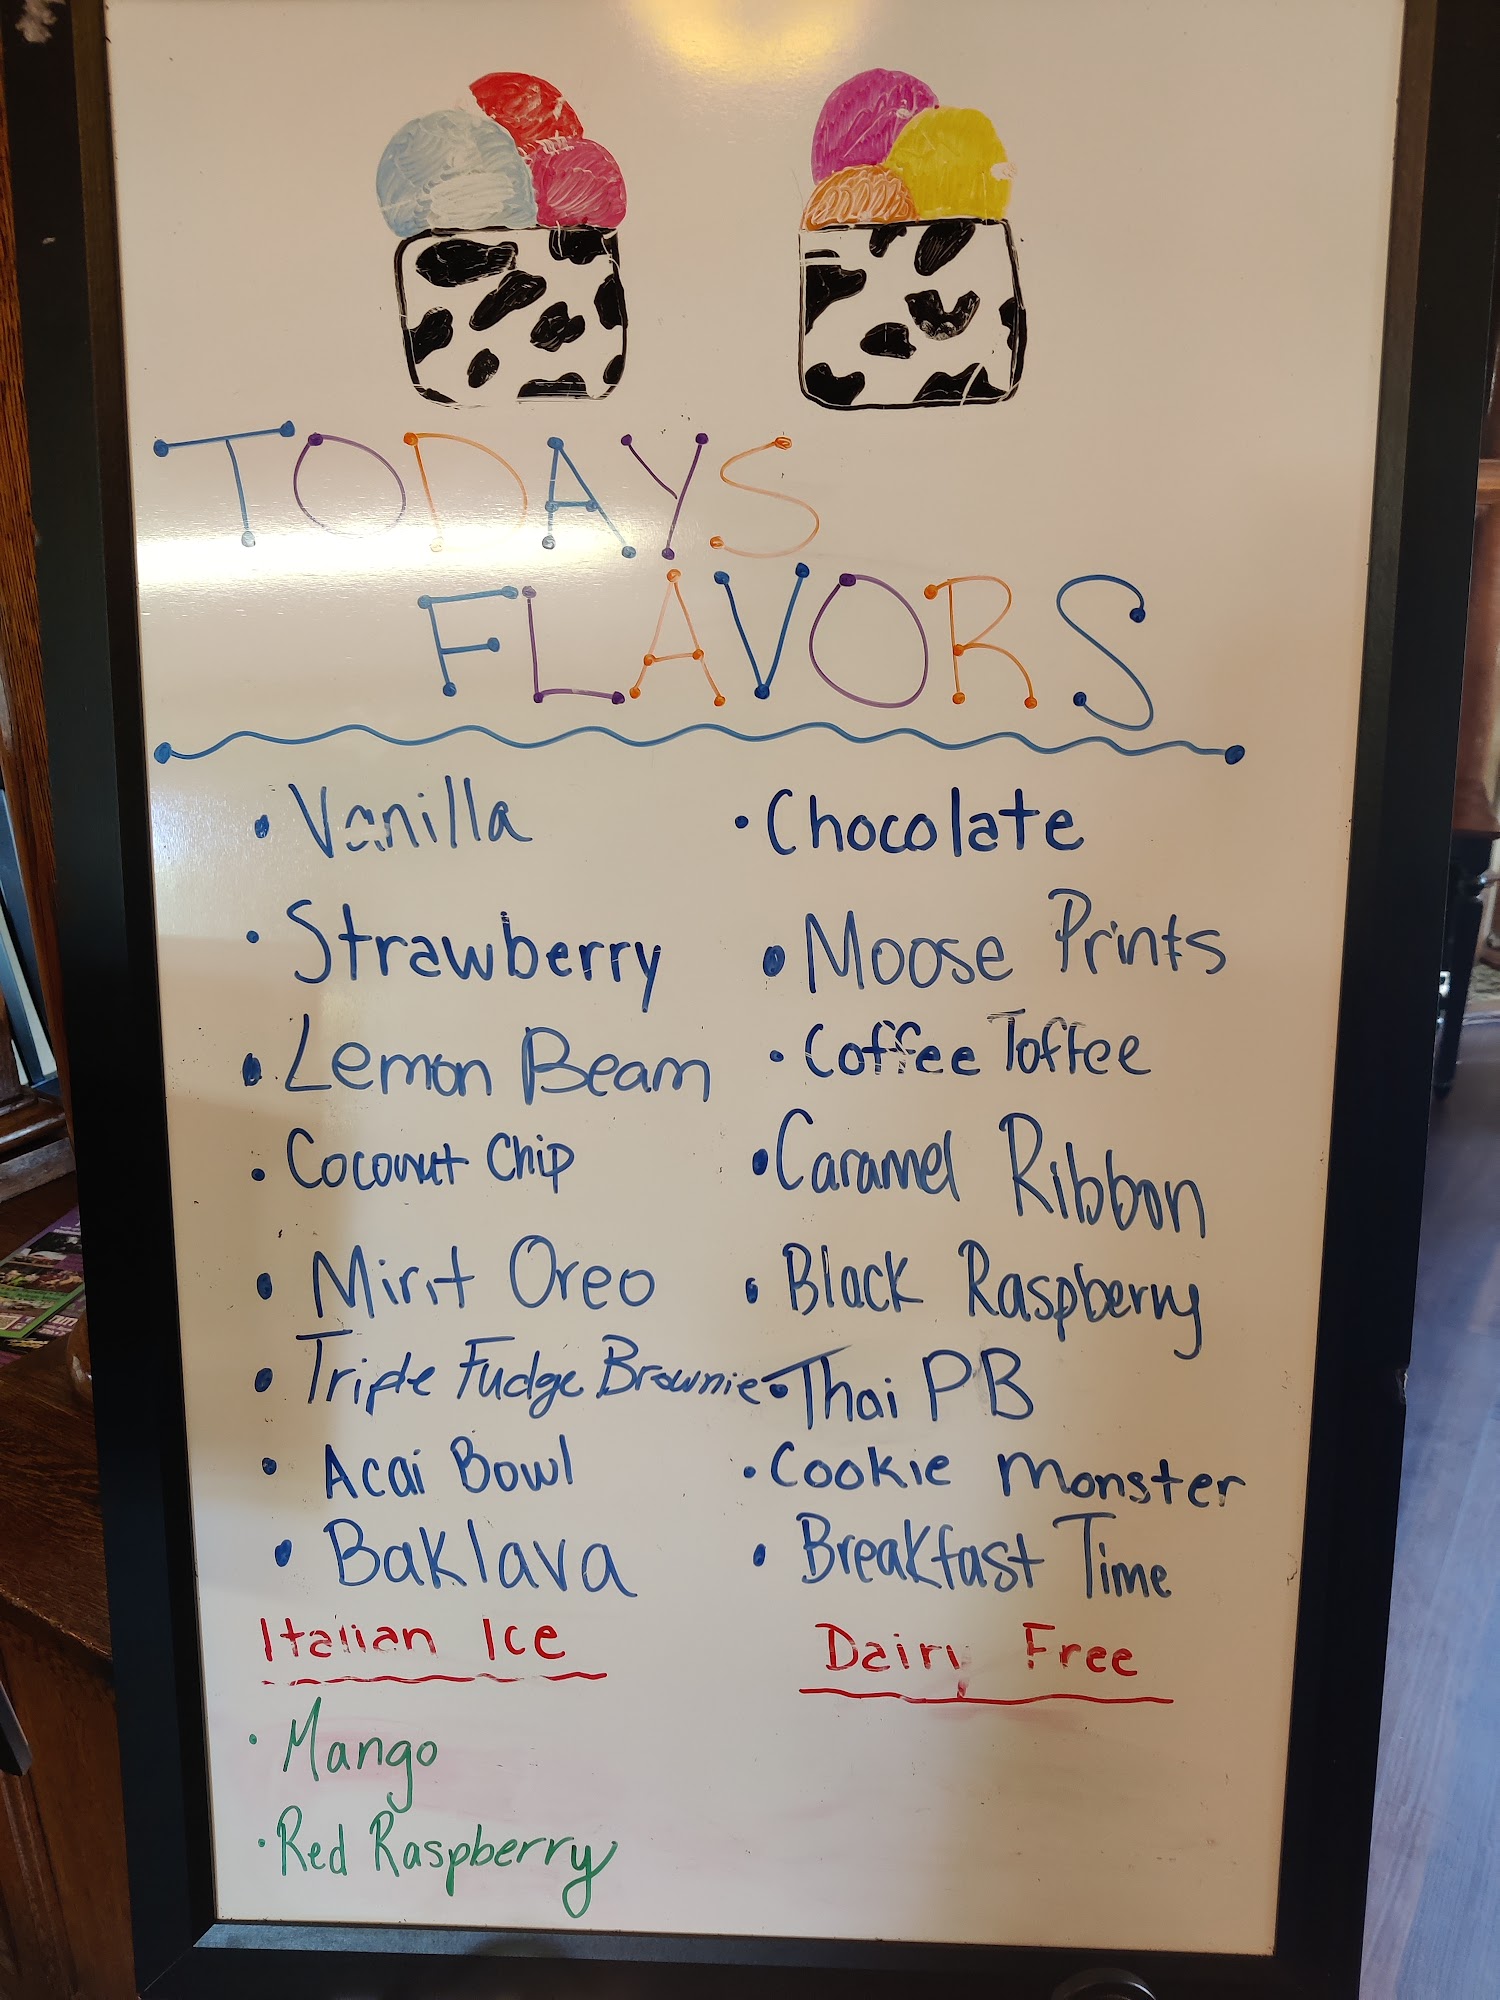 TODAYS
FLAVORS
• Vanilla
• Strawberry
• Lemon Beam
• Coconut Chip
• Mint Oreo
• Triple Fudge Brownie
• Acai Bowl
• Baklava
• Chocolate
• Moose Prints
• Coffee Toffee
• Caramel Ribbon
• Black Raspberry
• Thai PB
• Cookie Monster
• Breakfast Time
Italian Ice
• Mango
• Red Raspberry
Dairy Free